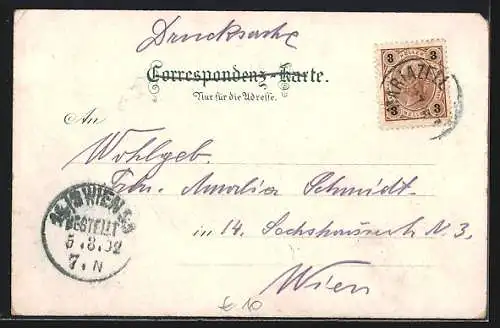 Drucksache
Correspondenz-Karte.
Nur für die Adresse.
3 HELLER 3
MARIAZELL
3 3
An
Wohlgeb.
Frau Amalia Schmidt
in 14. Sechshauserstr. N 3,
WIEN
BESTELLT
5.8.02
7. N
Wien
€ 10